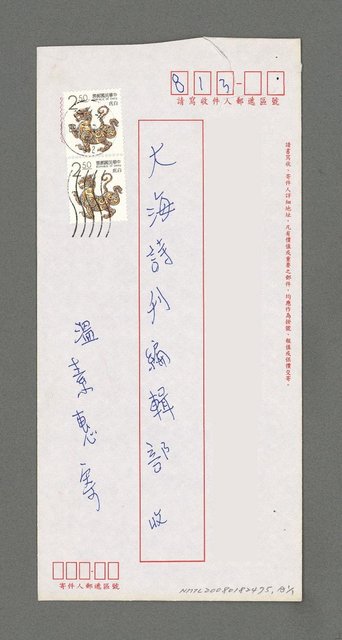 813-
請寫收件人郵遞區號
請書寫收、寄件人詳細地址,凡有價值或重要之郵件,均應作為掛號、報值或保價交寄。
大海詩刊編輯部 收
2.50
中華民國郵票
2.50
中華民國郵票
溫素惠寄
寄件人郵遞區號
NMTL20080182475,